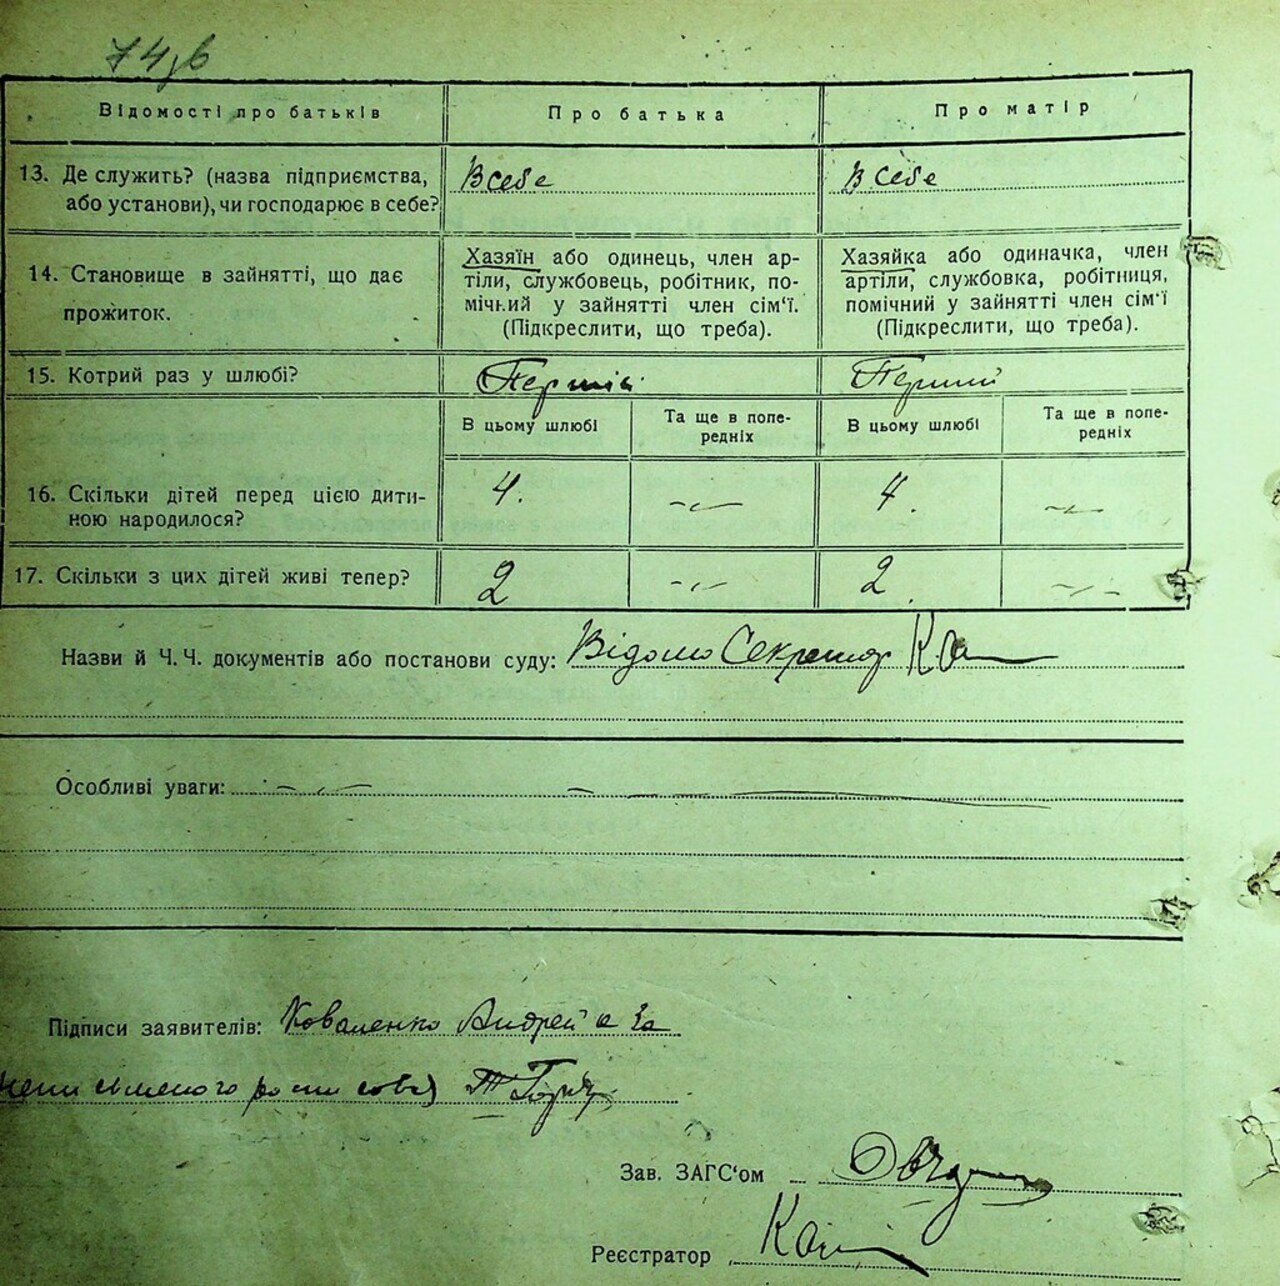 74зв
Відомості про батьків
Про батька
Про матір
13. Де служить? (назва підприємства,
або установи), чи господарює в себе?
В себе
В себе
14. Становище в зайнятті, що дає
прожиток.
Хазяїн або одинець, член ар-
тіли, службовець, робітник, по-
мічний у зайнятті член сім‘ї.
(Підкреслити, що треба).
Хазяйка або одиначка, член
артіли, службовка, робітниця,
помічний у зайнятті член сім‘ї
(Підкреслити, що треба).
15. Котрий раз у шлюбі?
Перший
Перший
В цьому шлюбі
Та ще в попе-
редніх
В цьому шлюбі
Та ще в попе-
редніх
16. Скільки дітей перед цією дити-
ною народилося?
4.
4.
17. Скільки з цих дітей живі тепер?
2
2.
Назви й Ч. Ч. документів або постанови суду: Відомо Секретар
Особливі уваги:
Підписи заявителів: Коваленко Андрей а за
Зав. ЗАГС‘ом
Реєстратор